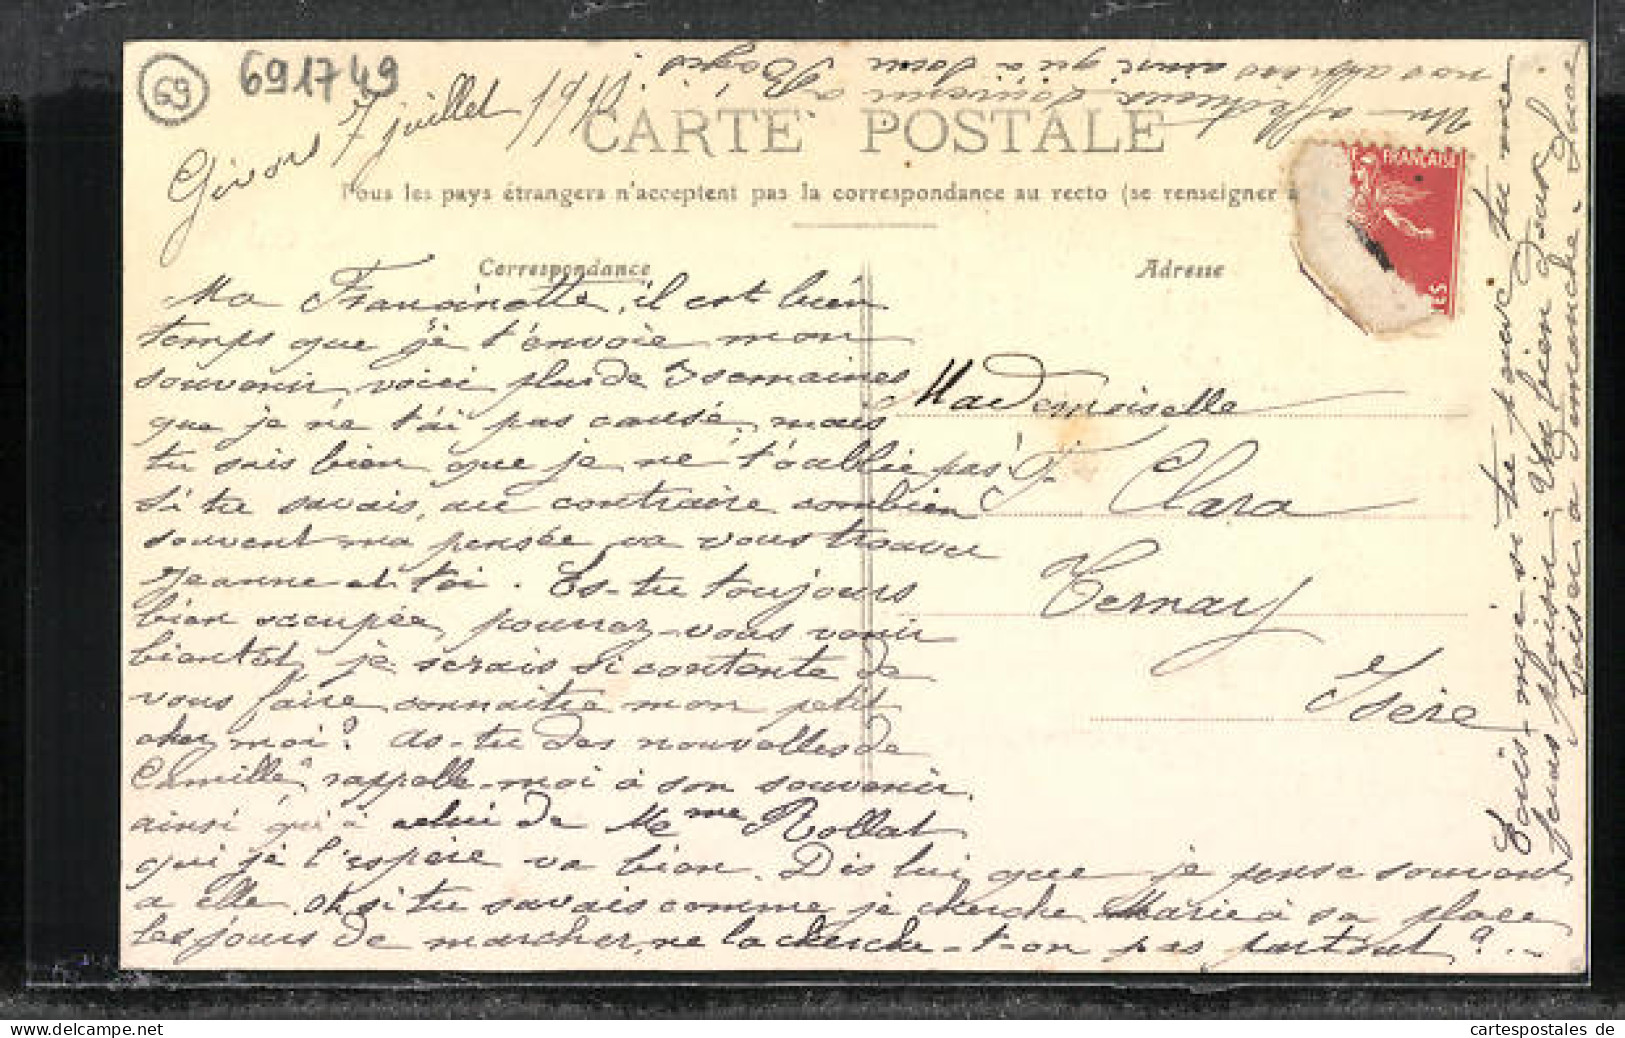 69
691749
Givors 7 juillet 1911
CARTE POSTALE
Tous les pays étrangers n'acceptent pas la correspondance au recto (se renseigner à
FRANÇAISE
Correspondance
Adresse
Ma Francinette, il est bien
temps que je t'envoie mon
souvenir, voici plus de 3 semaines
que je ne t'ai pas causé, mais
tu sais bien que je ne t'oublie pas.
Si tu savais, au contraire combien
souvent ma pensée va vous trouver
Jeanne et toi. Es-tu toujours
bien occupée, pourrez-vous venir
bientôt, je serais si contente de
vous faire connaitre mon petit
chez moi? As-tu des nouvelles de
Camille, rappelle-moi à son souvenir,
ainsi qu'à celui de Mme Rollat
qui je l'espère va bien. Dis lui que je pense souvent
a elle. Oh si tu savais comme je cherche Marie à sa place
les jours de marcher, ne la cherche-t-on pas partout? ...
Mademoiselle
F. Clara
Ternay
Isère
Ecris-moi si tu peux tu me
feras plaisir. Va bien pour
baiser a dimanche.
Un affectueux souvenir à
nos ainsi qu'à